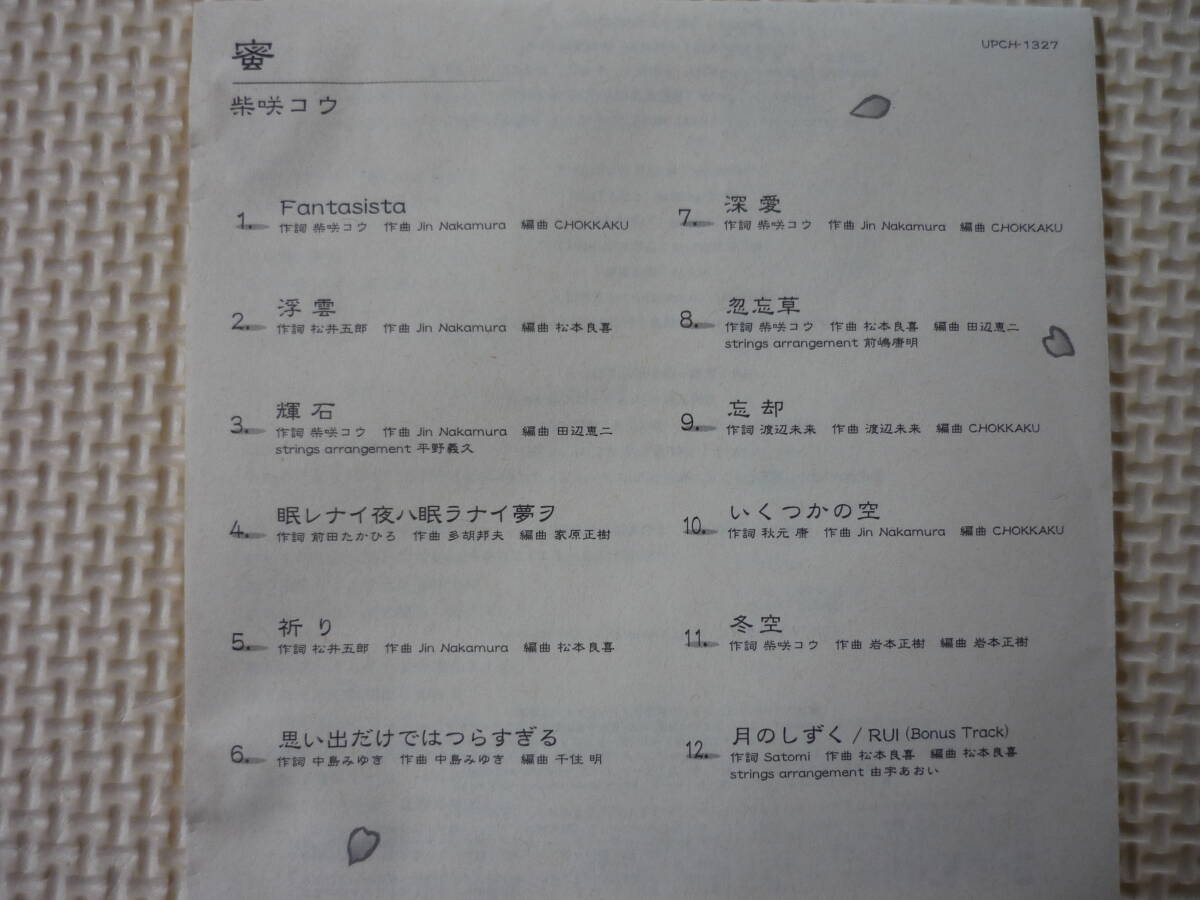 蜜
UPCH-1327
柴咲コウ
1. Fantasista
作詞 柴咲コウ 作曲 Jin Nakamura 編曲 CHOKKAKU
2. 浮雲
作詞 松井五郎 作曲 Jin Nakamura 編曲 松本良喜
3. 輝石
作詞 柴咲コウ 作曲 Jin Nakamura 編曲 田辺恵二
strings arrangement 平野義久
4. 眠レナイ夜ハ眠ラナイ夢ヲ
作詞 前田たかひろ 作曲 多胡邦夫 編曲 家原正樹
5. 祈り
作詞 松井五郎 作曲 Jin Nakamura 編曲 松本良喜
6. 思い出だけではつらすぎる
作詞 中島みゆき 作曲 中島みゆき 編曲 千住 明
7. 深愛
作詞 柴咲コウ 作曲 Jin Nakamura 編曲 CHOKKAKU
8. 忽忘草
作詞 柴咲コウ 作曲 松本良喜 編曲 田辺恵二
strings arrangement 前嶋康明
9. 忘却
作詞 渡辺未来 作曲 渡辺未来 編曲 CHOKKAKU
10. いくつかの空
作詞 秋元 康 作曲 Jin Nakamura 編曲 CHOKKAKU
11. 冬空
作詞 柴咲コウ 作曲 岩本正樹 編曲 岩本正樹
12. 月のしずく / RUI (Bonus Track)
作詞 Satomi 作曲 松本良喜 編曲 松本良喜
strings arrangement 由宇あおい